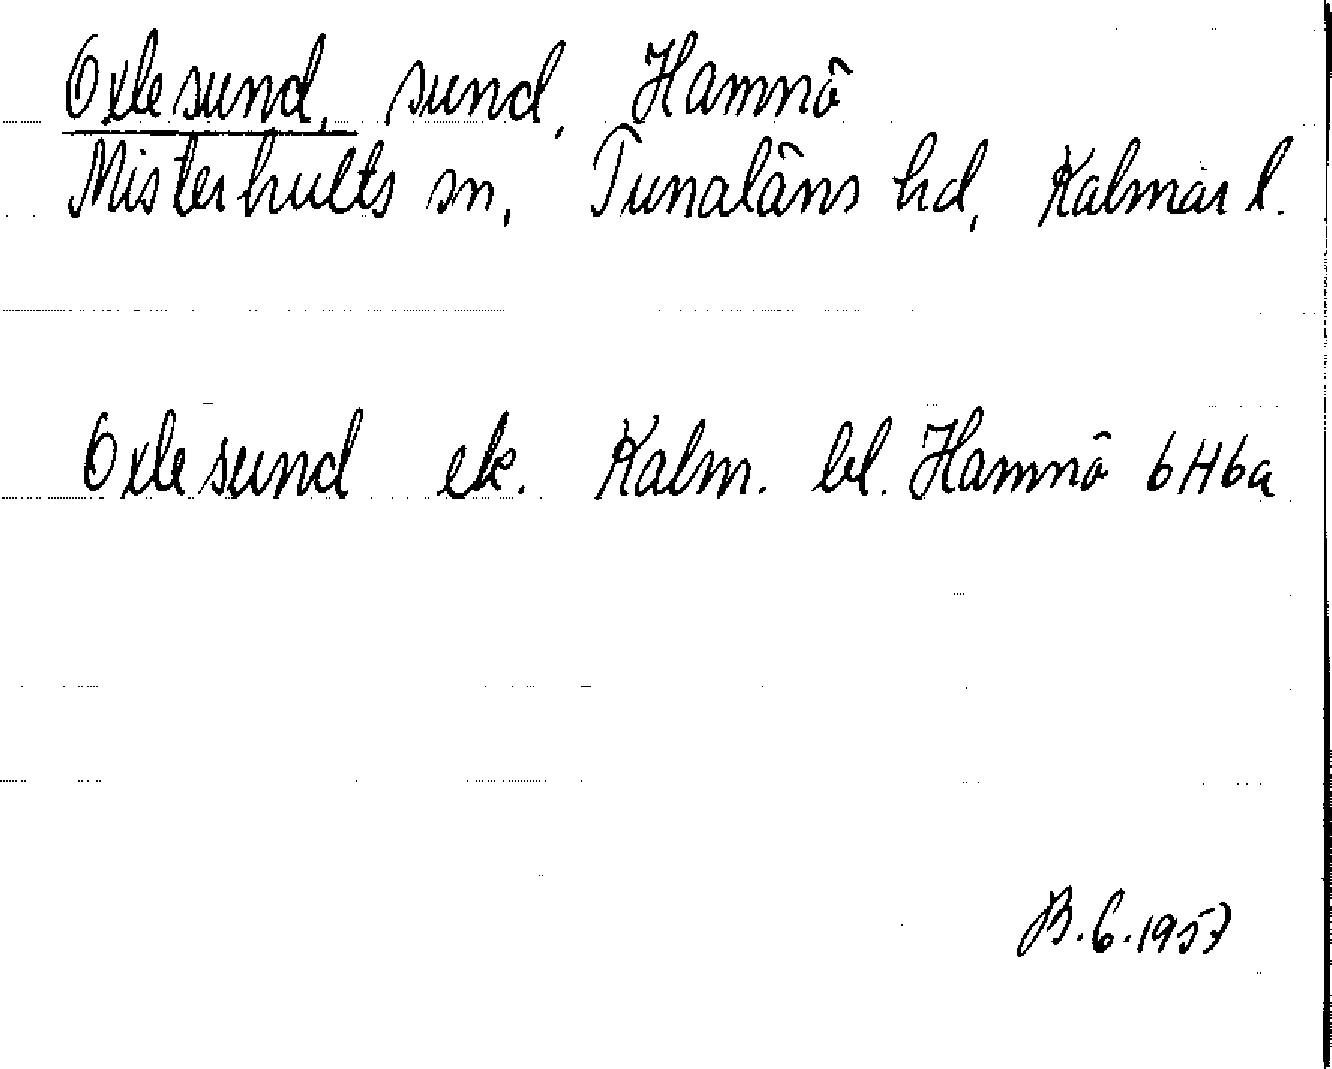 Oxlesund, sund, Hamnö
Misterhults sn, Tunaläns hd, Kalmar l.
Oxlesund ek. Kalm. bl. Hamnö 6H6a
B.G.1957